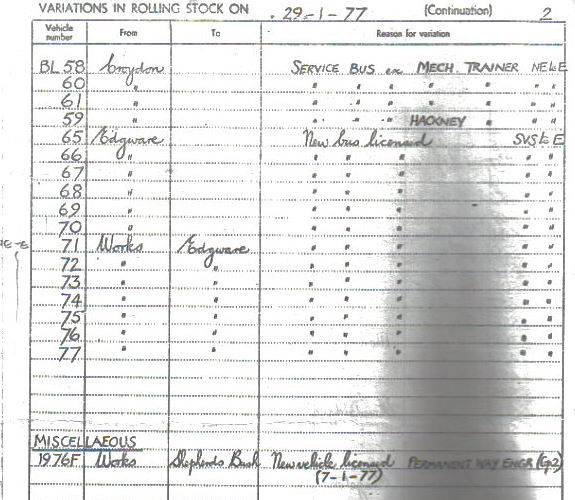 VARIATIONS IN ROLLING STOCK ON . 29-1-77 (Continuation) 2
Vehicle number From To Reason for variation
BL 58 Croydon SERVICE BUS ex MECH. TRAINER NE to E
60 " " " " " " " "
61 " " " " " " " "
59 " " " " HACKNEY " " "
65 Edgware New bus licensed SVS to E
66 " " " " " "
67 " " " " " "
68 " " " " " "
69 " " " " " "
70 " " " " " "
71 Works Edgware " " " " "
72 " " " " " " "
73 " " " " " " "
74 " " " " " " "
75 " " " " " " "
76 " " " " " " "
77 " " " " " " "
MISCELLAEOUS
1976F Works Shepherds Bush New vehicle licensed PERMANENT WAY ENGR (Gp2)
(7-1-77)